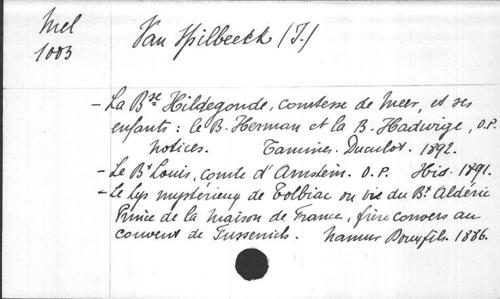 Mel
1003
Van Spilbeeck (I.)
- La Bse Hildegonde, comtesse de Meer, et ses
enfants : le B. Herman et la B. Hadwige, O.P.
notices. Tamines. Duculot. 1892.
- Le Bt Louis, comte d'Arnstein. O.P. Ibid. 1891.
- Le Lys mystérieux de Tolbiac ou vie du Bt Aldéric
Prince de la maison de France, frère convers au
couvent de Fussenich. Namur Douxfils. 1886.